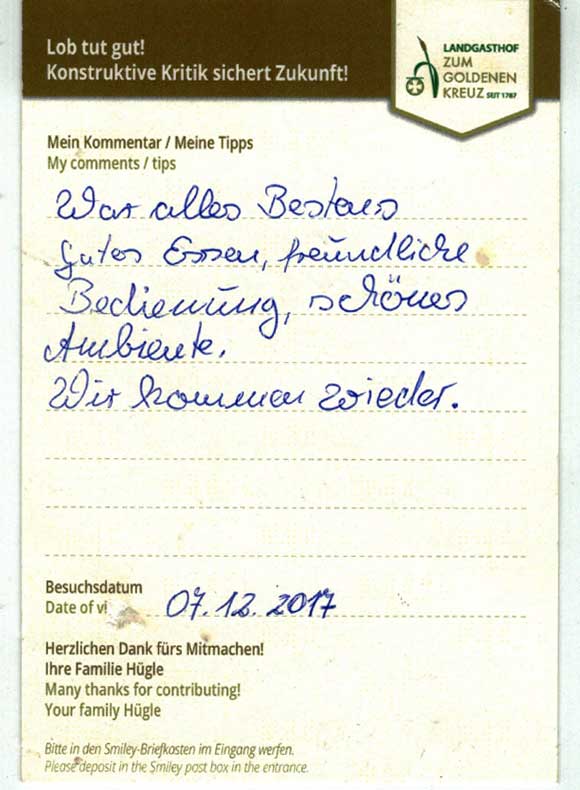 Lob tut gut!
Konstruktive Kritik sichert Zukunft!
LANDGASTHOF
ZUM
GOLDENEN
KREUZ SEIT 1767
Mein Kommentar / Meine Tipps
My comments / tips
War alles Bestens
gutes Essen, freundliche
Bedienung, schönes
Ambiente.
Wir kommen wieder.
Besuchsdatum
Date of vi
07.12.2017
Herzlichen Dank fürs Mitmachen!
Ihre Familie Hügle
Many thanks for contributing!
Your family Hügle
Bitte in den Smiley-Briefkasten im Eingang werfen.
Please deposit in the Smiley post box in the entrance.